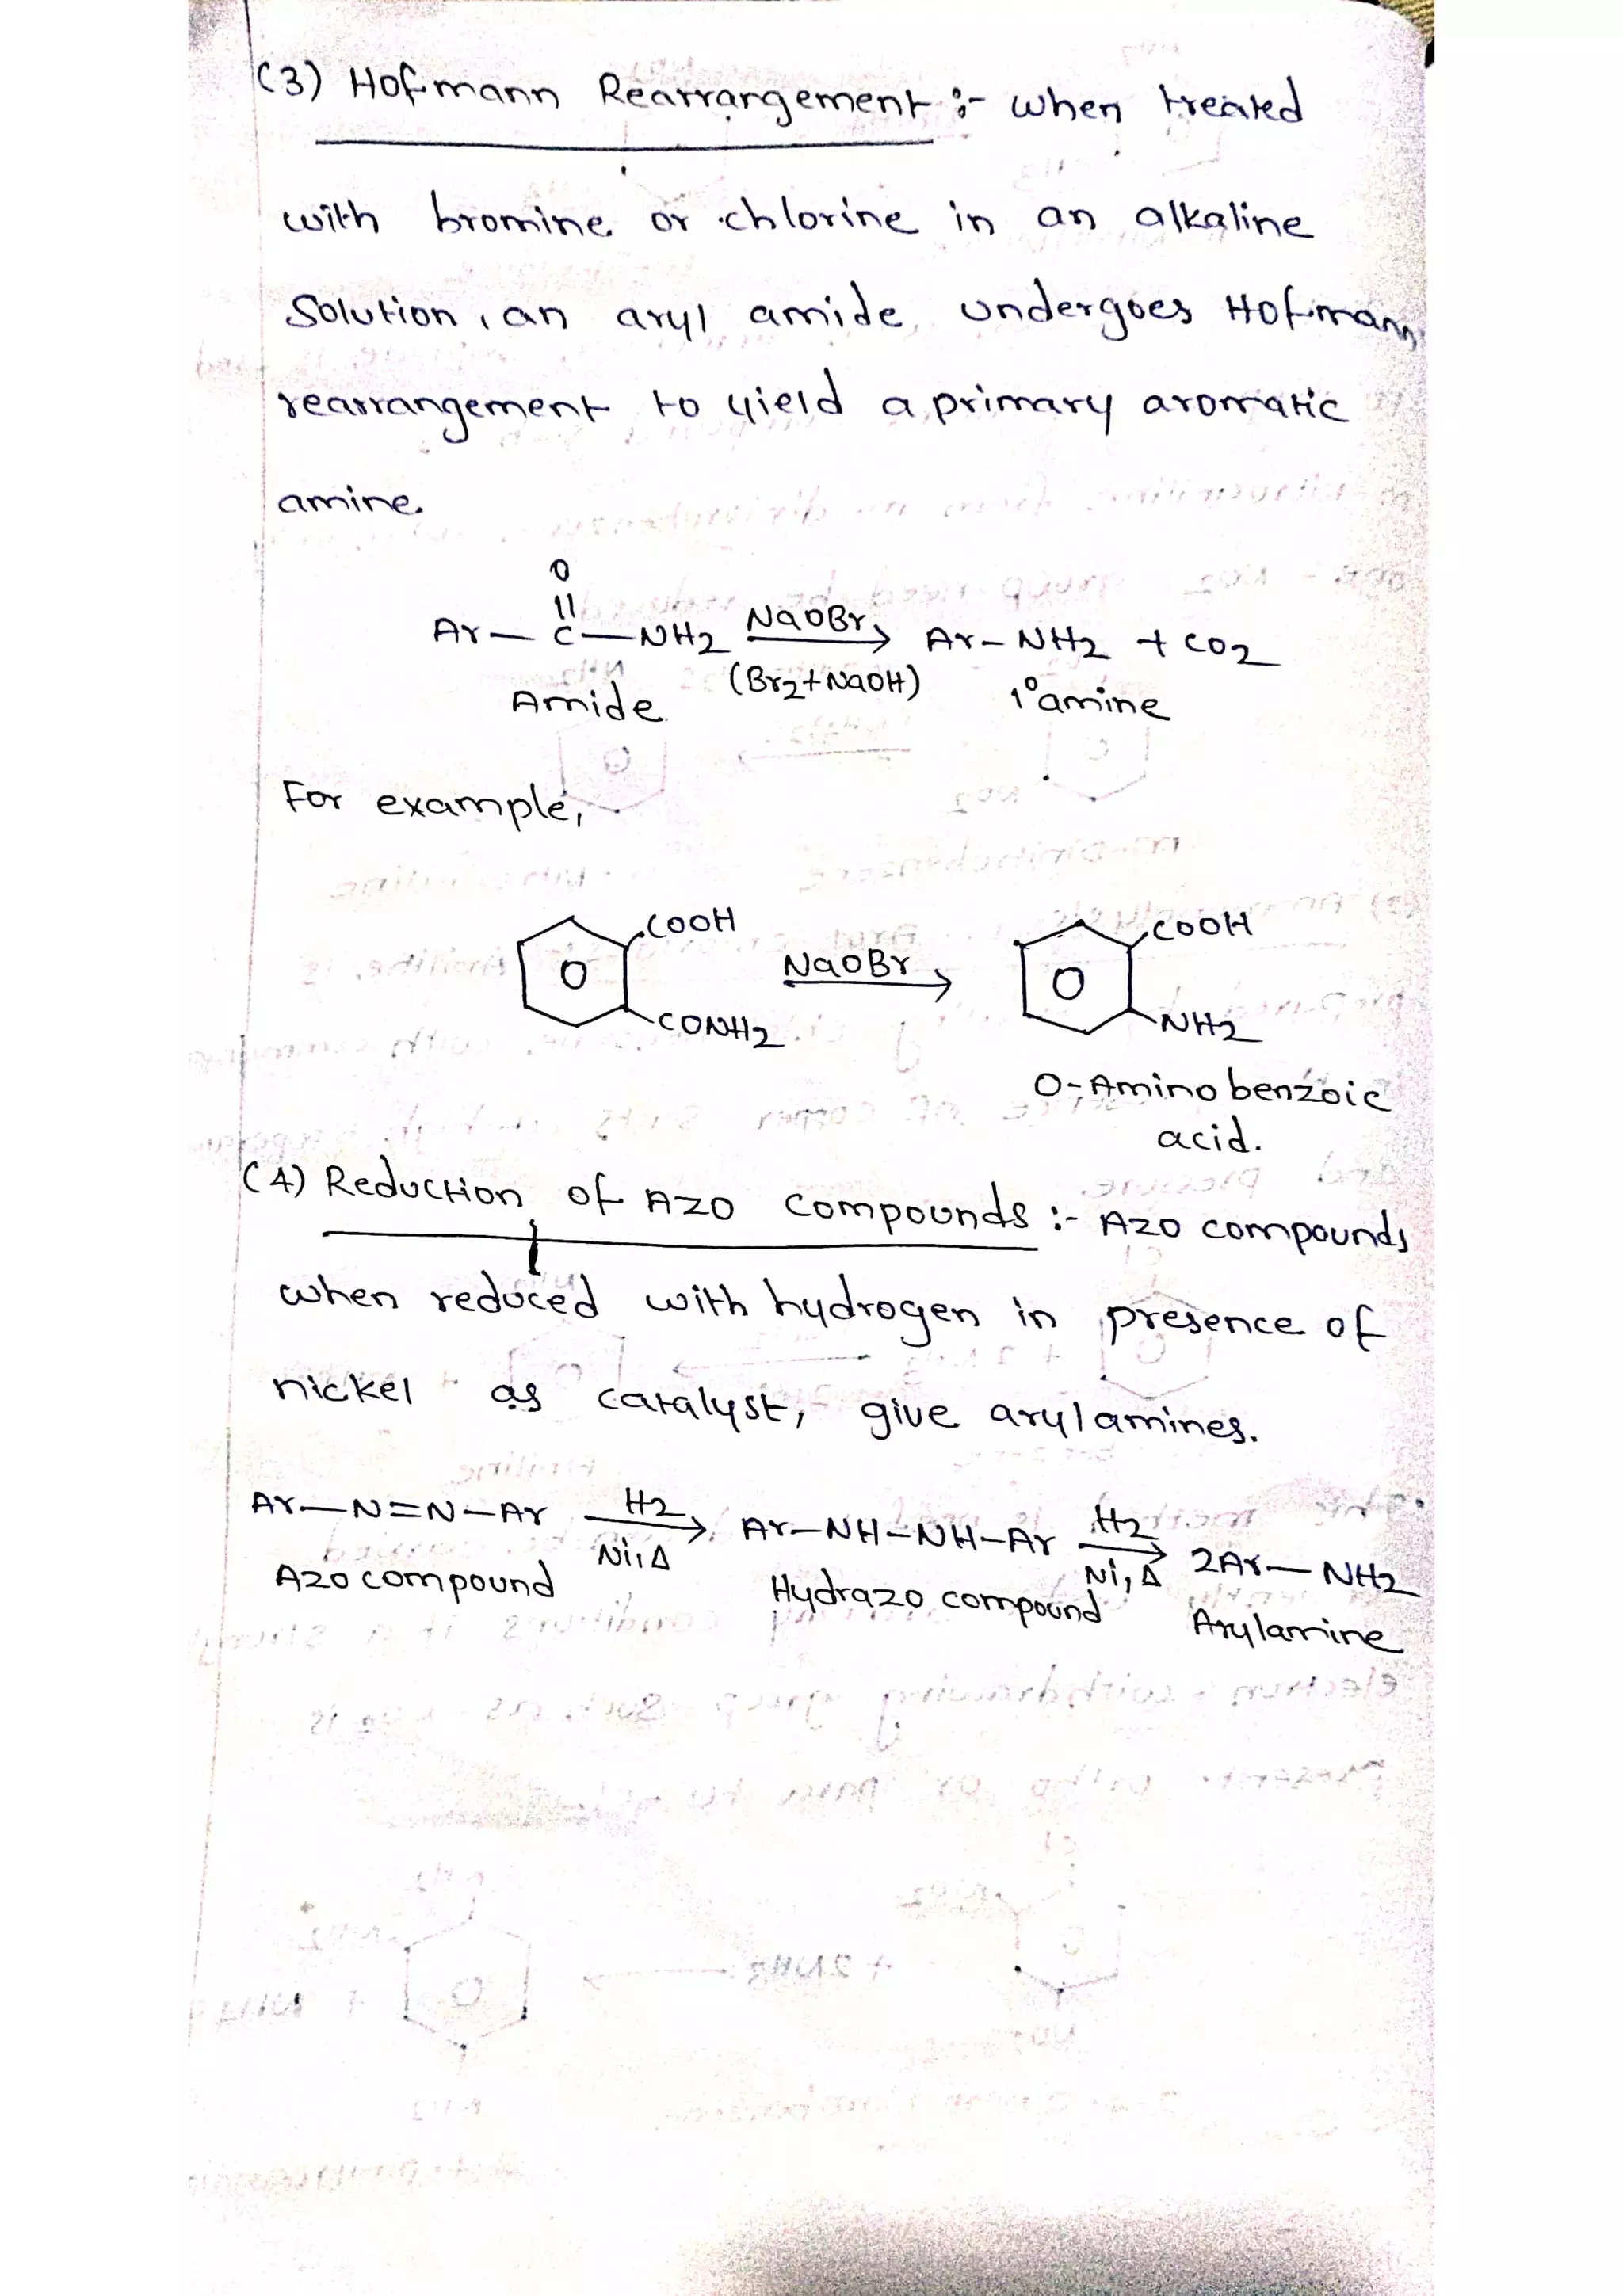 (3) Hofmann Rearrangement :- when treated
with bromine or chlorine in an alkaline
Solution, an aryl amide undergoes Hofmann
rearrangement to yield a primary aromatic
amine.
O
||
Ar — C — NH2 NaOBr → Ar - NH2 + CO2
Amide (Br2+NaOH) 1° amine
For example,
COOH NaOBr → COOH
CONH2 NH2
O-Amino benzoic
acid.
(4) Reduction of Azo compounds :- Azo compounds
when reduced with hydrogen in presence of
nickel as catalyst, give arylamines.
Ar—N=N—Ar H2 Ni, Δ → Ar—NH—NH—Ar H2 Ni, Δ → 2Ar—NH2
Azo compound Hydrazo compound Arylamine